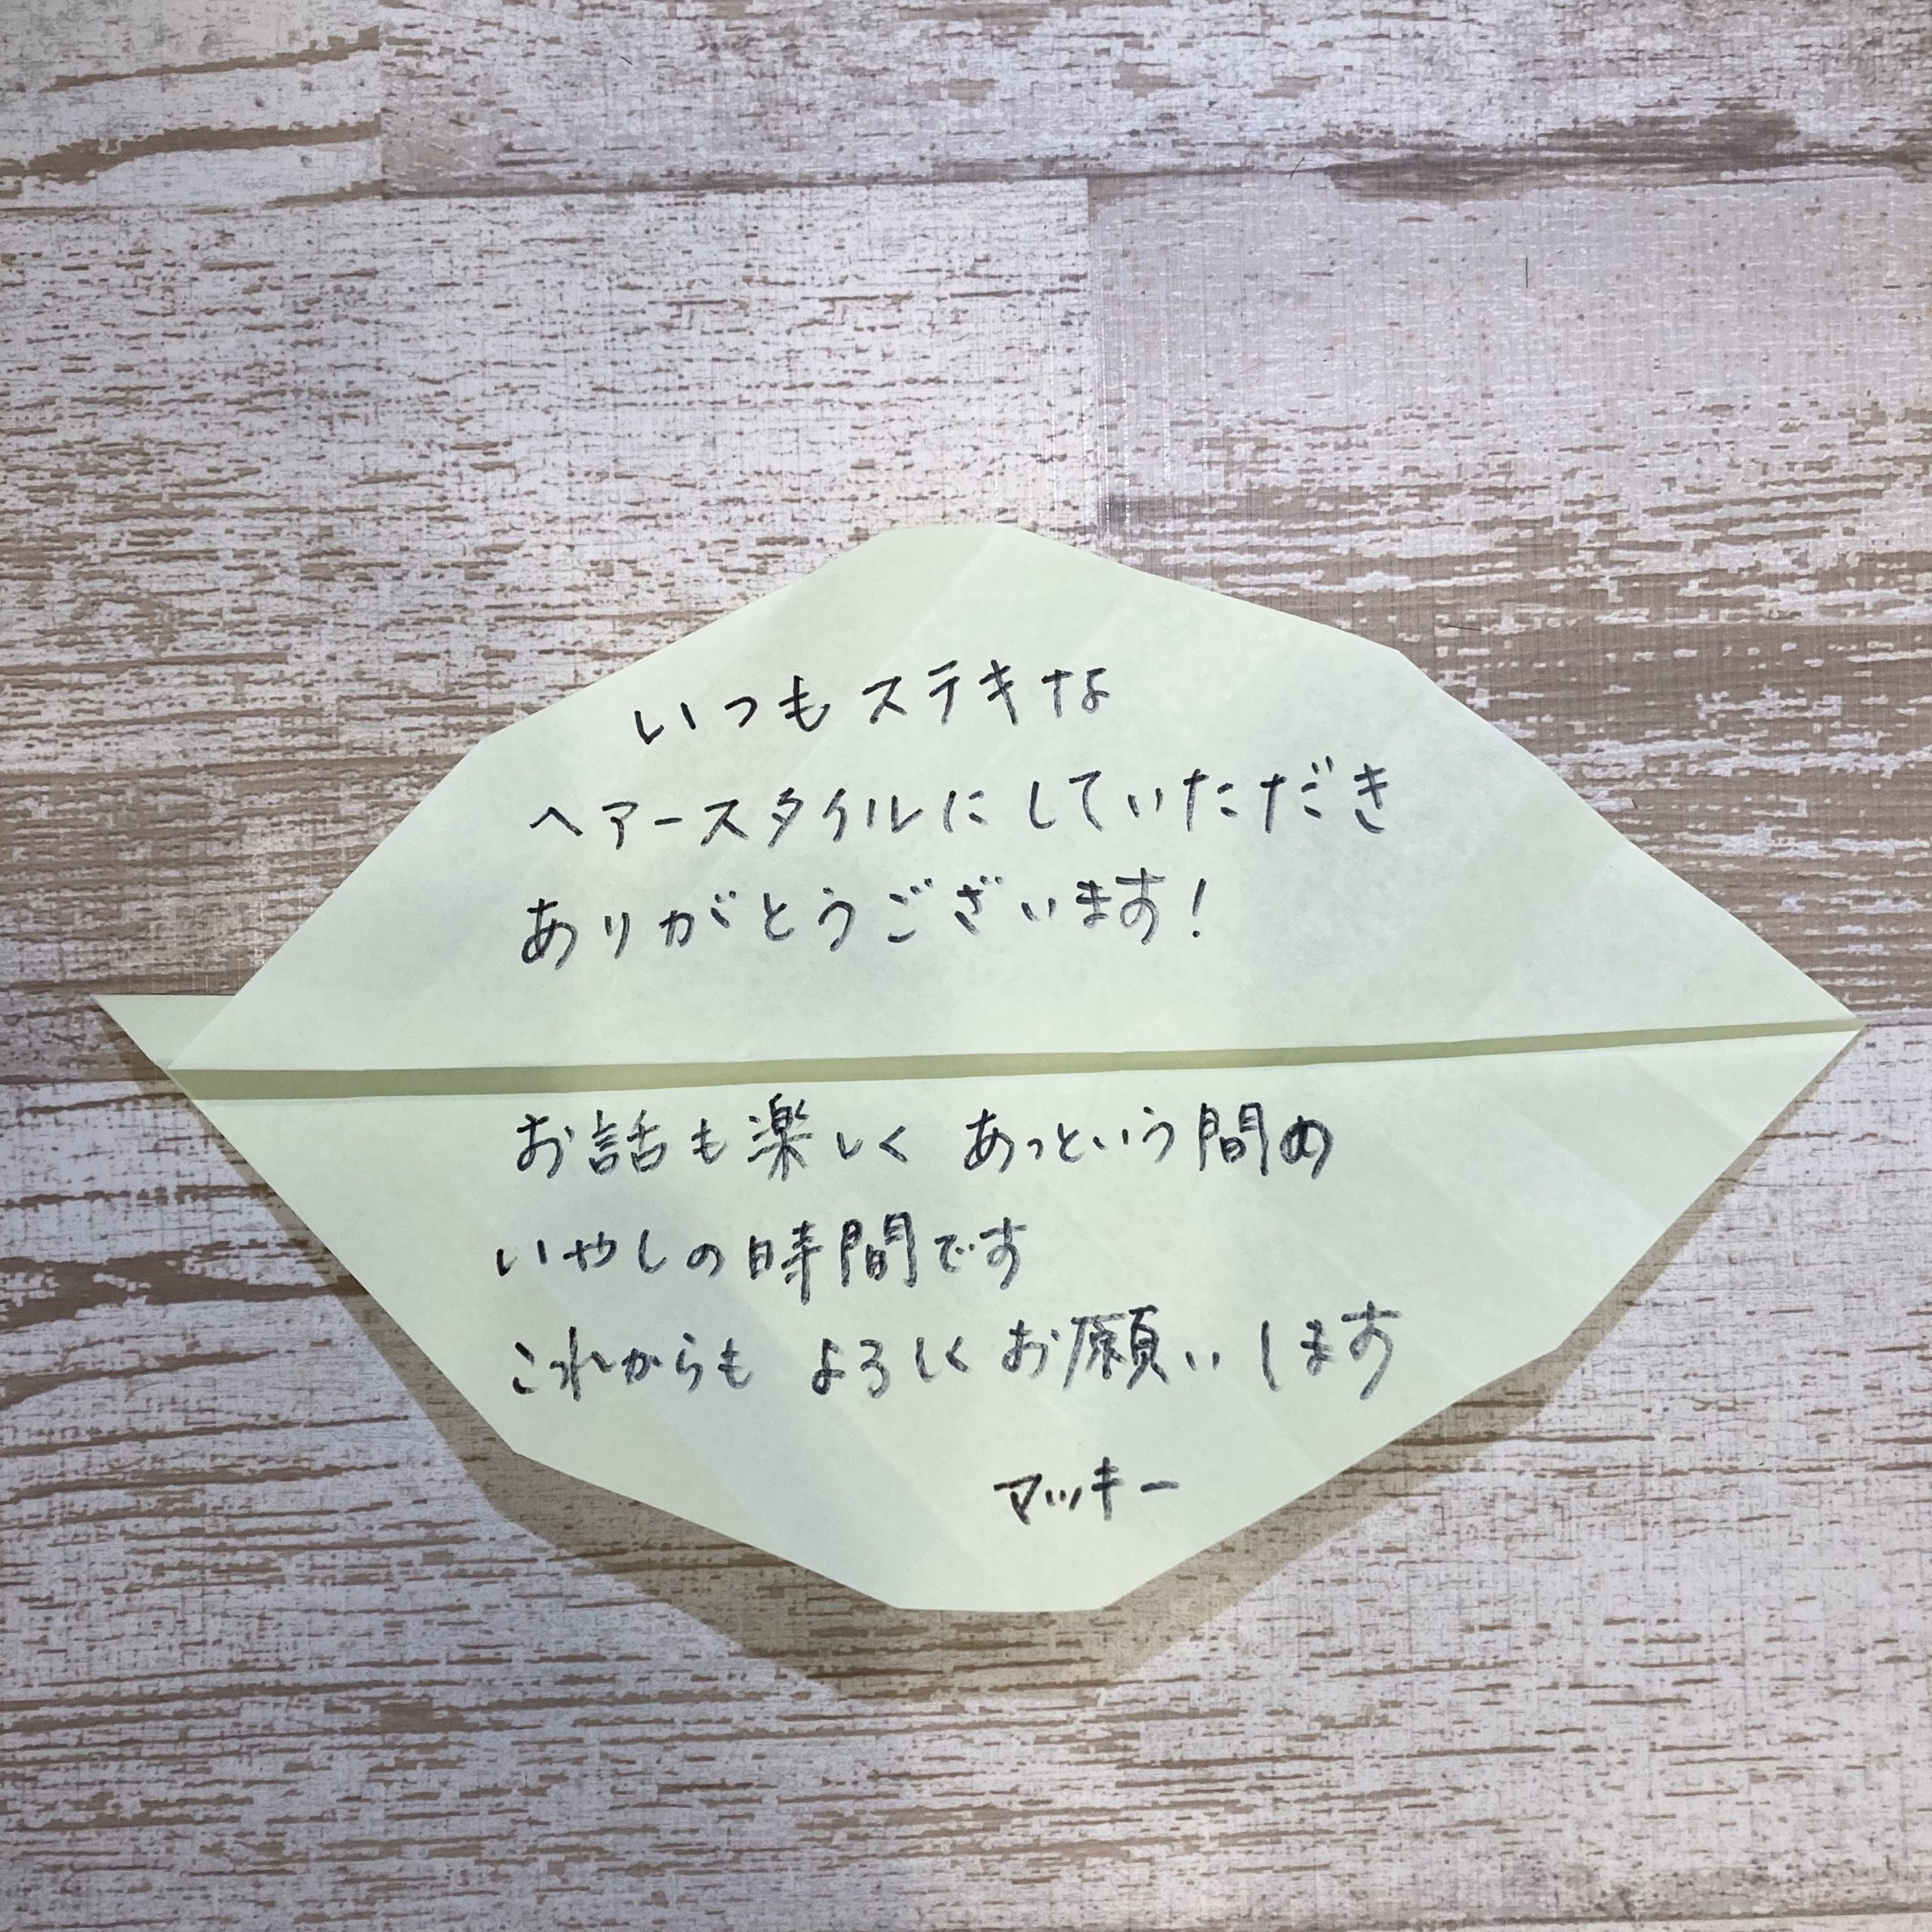 いつもステキな
ヘアースタイルにしていただき
ありがとうございます!
お話も楽しく あっという間の
いやしの時間です
これからも よろしくお願いします
マッキー